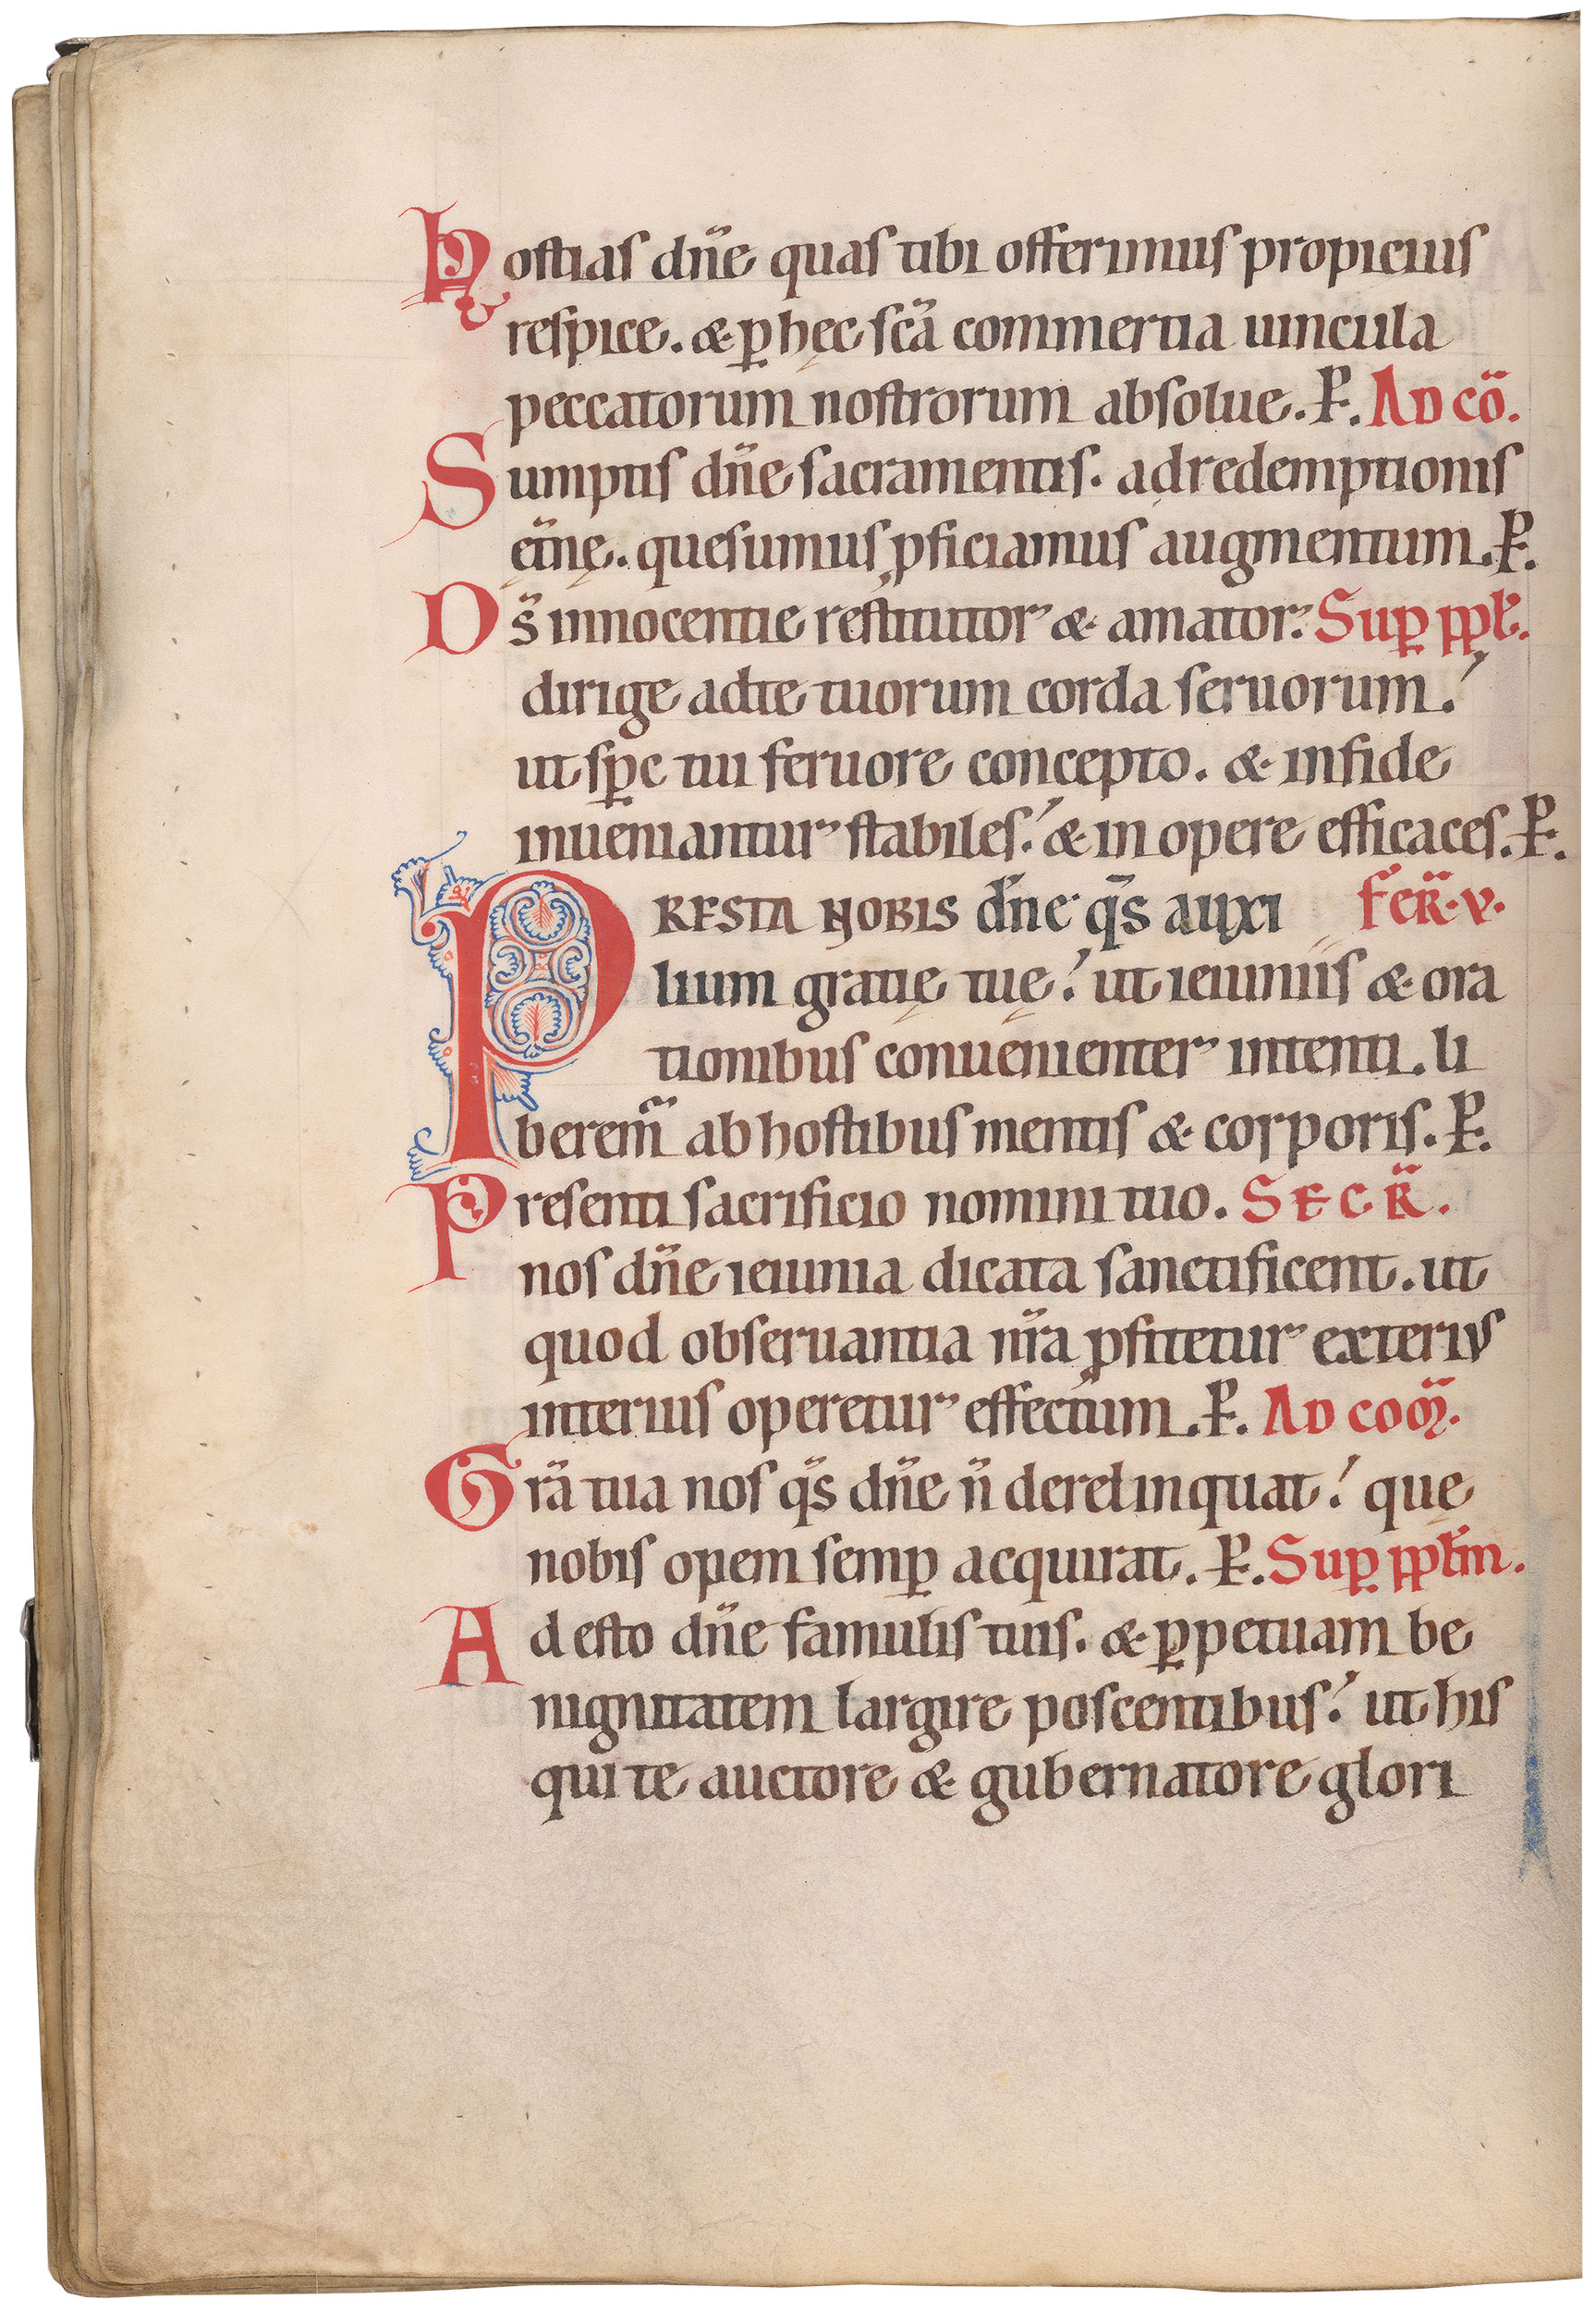 Hostias dn̄e quas tibi offerimus propicius
respice. & ꝑ hęc scā commertia uincula
peccatorum nostrorum absolue. P. AD CŌ.
Sumptis dn̄e sacramentis. ad redemptionis
ęt̄nę. quesumus ꝓficiamus augmentum. P.
Ds̄ innocentie restitutor & amator. Suꝑ ppl̄.
dirige ad te tuorum corda seruorum.
ut spc tui feruore concepto. & in fide
inueniantur stabiles. & in opere efficaces. P.
PRESTA NOBIS dn̄e qs̄ auxi FER̄. V.
lium gratię tuę. ut ieiuniis & ora
tionibus conuenienter intenti. li
berem̄ ab hostibus mentis & corporis. P.
Presenti sacrificio nomini tuo. SECR̄.
nos dn̄e ieiunia dicata sanctificent. ut
quod obseruantia nr̄a ꝓfitetur exterius
interius operetur effectum. P. AD COM̄.
Grā tua nos qs̄ dn̄e n̄ derelinquat. quę
nobis opem semꝑ acquirat. P. Suꝑ ppl̄m.
Adesto dn̄e famulis tuis. & ꝑpetuam be
nignitatem largire poscentibus. ut his
qui te auctore & gubernatore glori